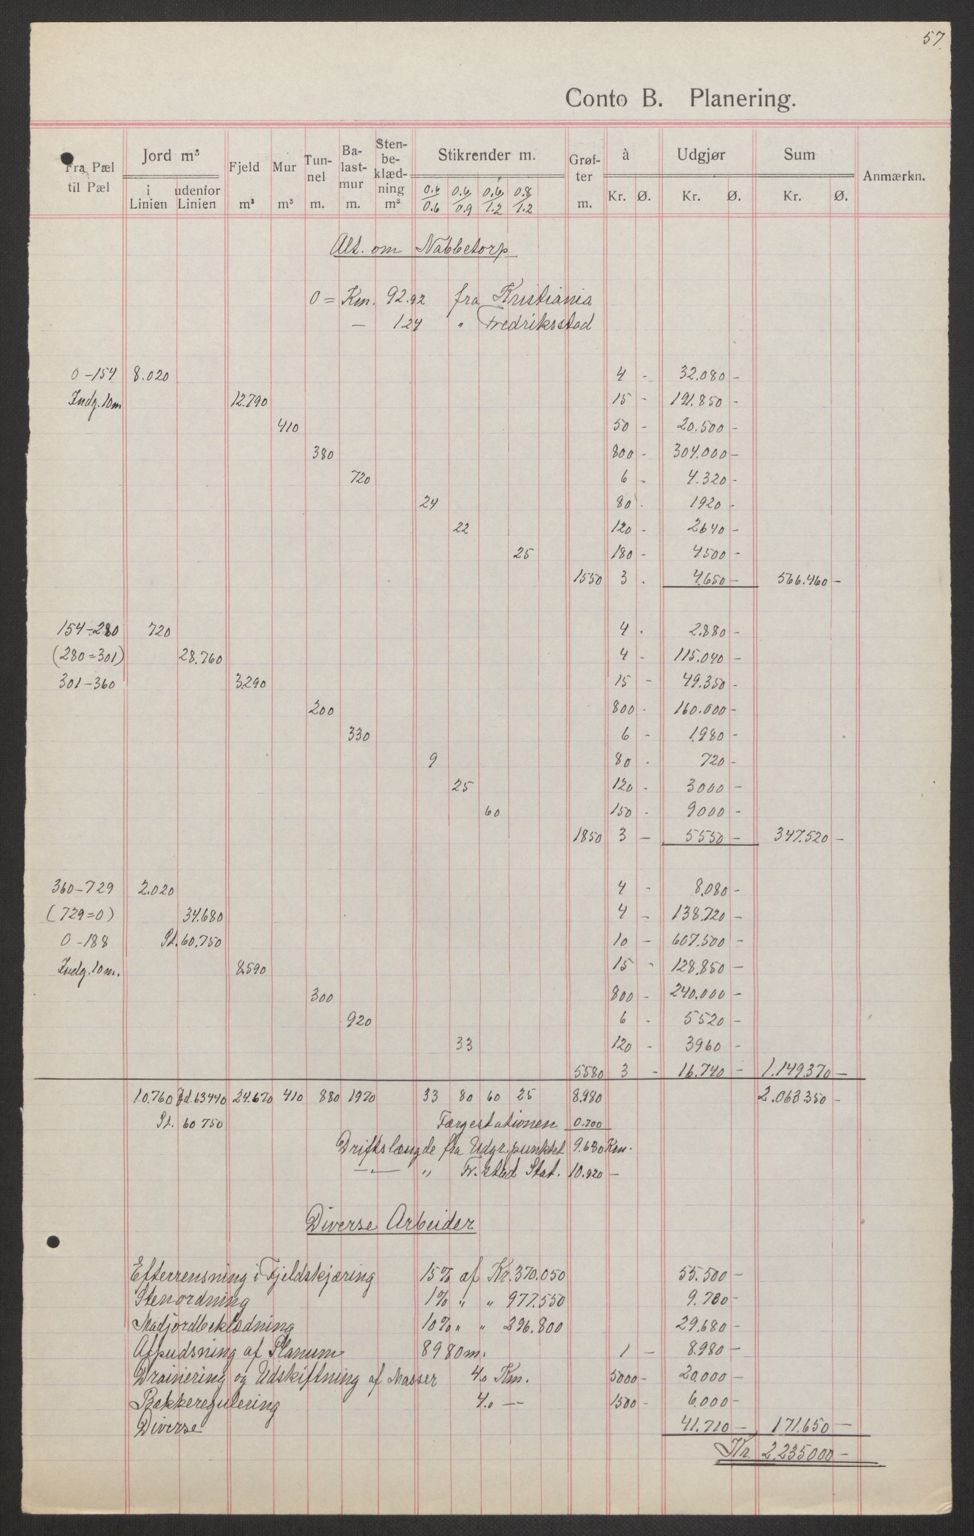 57
Conto B. Planering.
Fra Pæl til Pæl | Jord m³ i Linien | udenfor Linien | Fjeld m³ | Mur m³ | Tunnel m. | Balastmur m. | Stenbeklædning m² | Stikrender m. 0.6/0.6 0.6/0.9 0.6/1.2 0.8/1.2 | Grøfter m. | à Kr. Ø. | Udgjør Kr. Ø. | Sum Kr. Ø. | Anmærkn.
Alt. om Nabbetorp
0 = Km. 92.92 fra Kristiania
— 124 " Fredriksstad
0-154 8.020 4 - 32.080 -
Indg. 10m 12.790 15 - 191.850 -
410 50 - 20.500 -
380 800 - 304.000 -
720 6 - 4.320 -
24 80 - 1920 -
22 120 - 2640 -
25 180 - 4500 -
1550 3 . 4.650 - 566.460 -
154-280 720 4 . 2.880 -
(280=301) 28.760 4 - 115.040 -
301-360 3290 15 - 49.350 -
200 800 - 160.000 -
330 6 - 1.980 -
9 80 - 720 -
25 120 - 3000 -
60 150 - 9000 -
1850 3 - 5550 - 347.520 -
360-729 2.020 4 - 8.080 -
(729=0) 34.680 4 - 138.720 -
0-188 St. 60.750 10 - 607.500 -
Indg. 10m. 8590 15 - 128.850 -
300 800 - 240.000 -
920 6 - 5520 -
33 120 - 3960 -
5580 3 - 16.740 - 1.149.370 -
10.760 Jd. 63440 24.670 410 880 1970 33 80 60 25 8.980 2.063.350 -
St. 60 750 Færgestationen 0.700
Driftslængde fra Udgr. punktet 9.680 Km.
— " — " Fr.stad Stat. 10.920 —
Diverse Arbeider
Efterrensning i Fjeldskjæring 15% af Kr. 370.050 55.500 -
Stenordning 1% " " 977.550 9.780 -
Madjordbeklædning 10% " " 296.800 29.680 -
Afpudsning af Planum 8980 m. 1 - 8.980 -
Drainering og Udskiftning af Masser 4.0 Km. 5000 - 20.000 -
Bekkeregulering 4.0 — 1500 - 6.000 -
Diverse 41.710 - 171.650 -
Kr. 2.235000 -